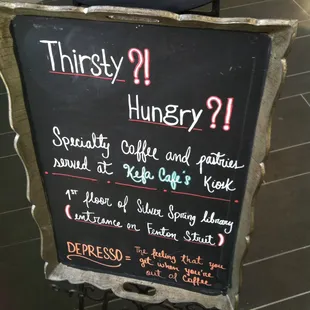 Thirsty?!
Hungry?!
Specialty Coffee and pastries
served at Kefa Cafe's Kiosk
1st floor of Silver Spring library
(entrance on Fenton Street)
DEPRESSO = The feeling that you
get when you're
out of Coffee